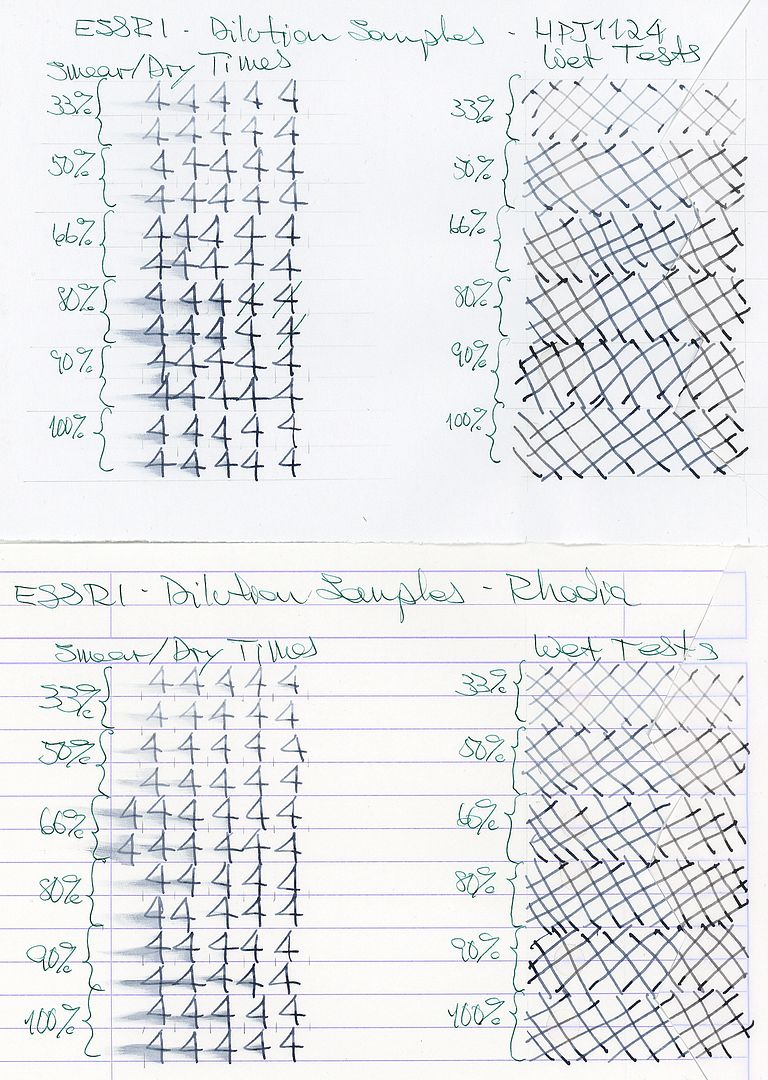 ESSRI - Dilution Samples - HPJ1124
Smear/Dry Times Wet Tests
33% 4 4 4 4 4 33%
4 4 4 4 4
50% 4 4 4 4 4 50%
4 4 4 4 4
66% 4 4 4 4 4 66%
4 4 4 4 4
80% 4 4 4 4 4 80%
4 4 4 4 4
90% 4 4 4 4 4 90%
4 4 4 4 4
100% 4 4 4 4 4 100%
4 4 4 4 4
ESSRI - Dilution Samples - Rhodia
Smear/Dry Times Wet Tests
33% 4 4 4 4 4 33%
4 4 4 4 4
50% 4 4 4 4 4 50%
4 4 4 4 4
66% 4 4 4 4 4 4 66%
4 4 4 4 4 4
80% 4 4 4 4 4 80%
4 4 4 4 4
90% 4 4 4 4 4 90%
4 4 4 4 4
100% 4 4 4 4 4 100%
4 4 4 4 4